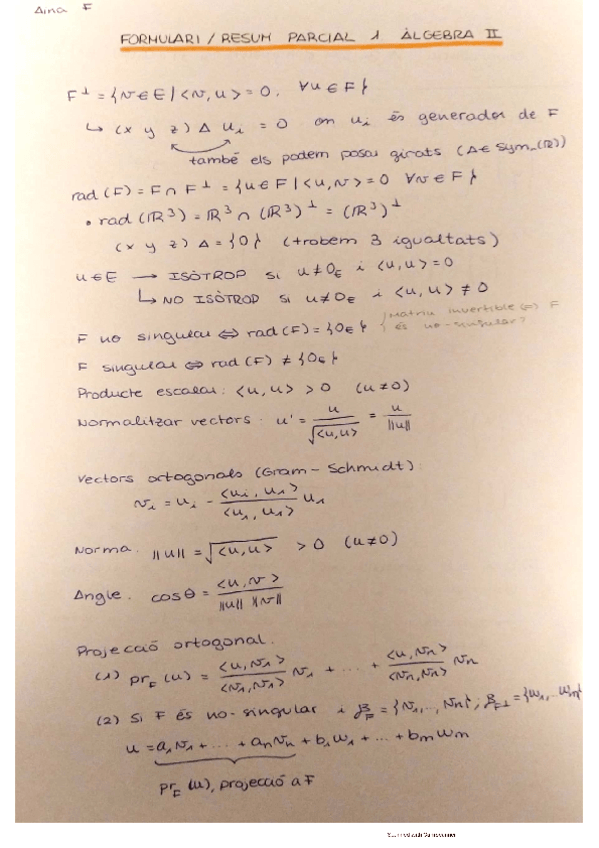 Aina F
FORMULARI / RESUM PARCIAL 1 ÀLGEBRA II
F⊥ = {v ∈ E | <v, u> = 0, ∀u ∈ F}
↳ (x y z) A ui = 0 on ui és generador de F
també els podem posar girats (A ∈ Symn(ℝ))
rad (F) = F ∩ F⊥ = {u ∈ F | <u, v> = 0 ∀v ∈ F}
• rad (ℝ³) = ℝ³ ∩ (ℝ³)⊥ = (ℝ³)⊥
(x y z) A = {0} (trobem 3 igualtats)
u ∈ E → ISÒTROP si u ≠ 0E i <u, u> = 0
↳ NO ISÒTROP si u ≠ 0E i <u, u> ≠ 0
F no singular ⇔ rad (F) = {0E} {Matriu invertible (⇒) F
és no-singular?
F singular ⇔ rad (F) ≠ {0E}
Producte escalar: <u, u> > 0 (u ≠ 0)
Normalitzar vectors: u' = u / √<u, u> = u / ||u||
Vectors ortogonals (Gram-Schmidt):
v1 = ui - <ui, u1> / <u1, u1> u1
Norma: ||u|| = √<u, u> > 0 (u ≠ 0)
Angle: cos θ = <u, v> / ||u|| ||v||
Projecció ortogonal:
(1) prF (u) = <u, v1> / <v1, v1> v1 + ... + <u, vn> / <vn, vn> vn
(2) Si F és no-singular i βF = {v1, ..., vn}; βF⊥ = {w1, ... wm}
u = a1v1 + ... + anvn + b1w1 + ... + bmwm
prF (u), projecció a F